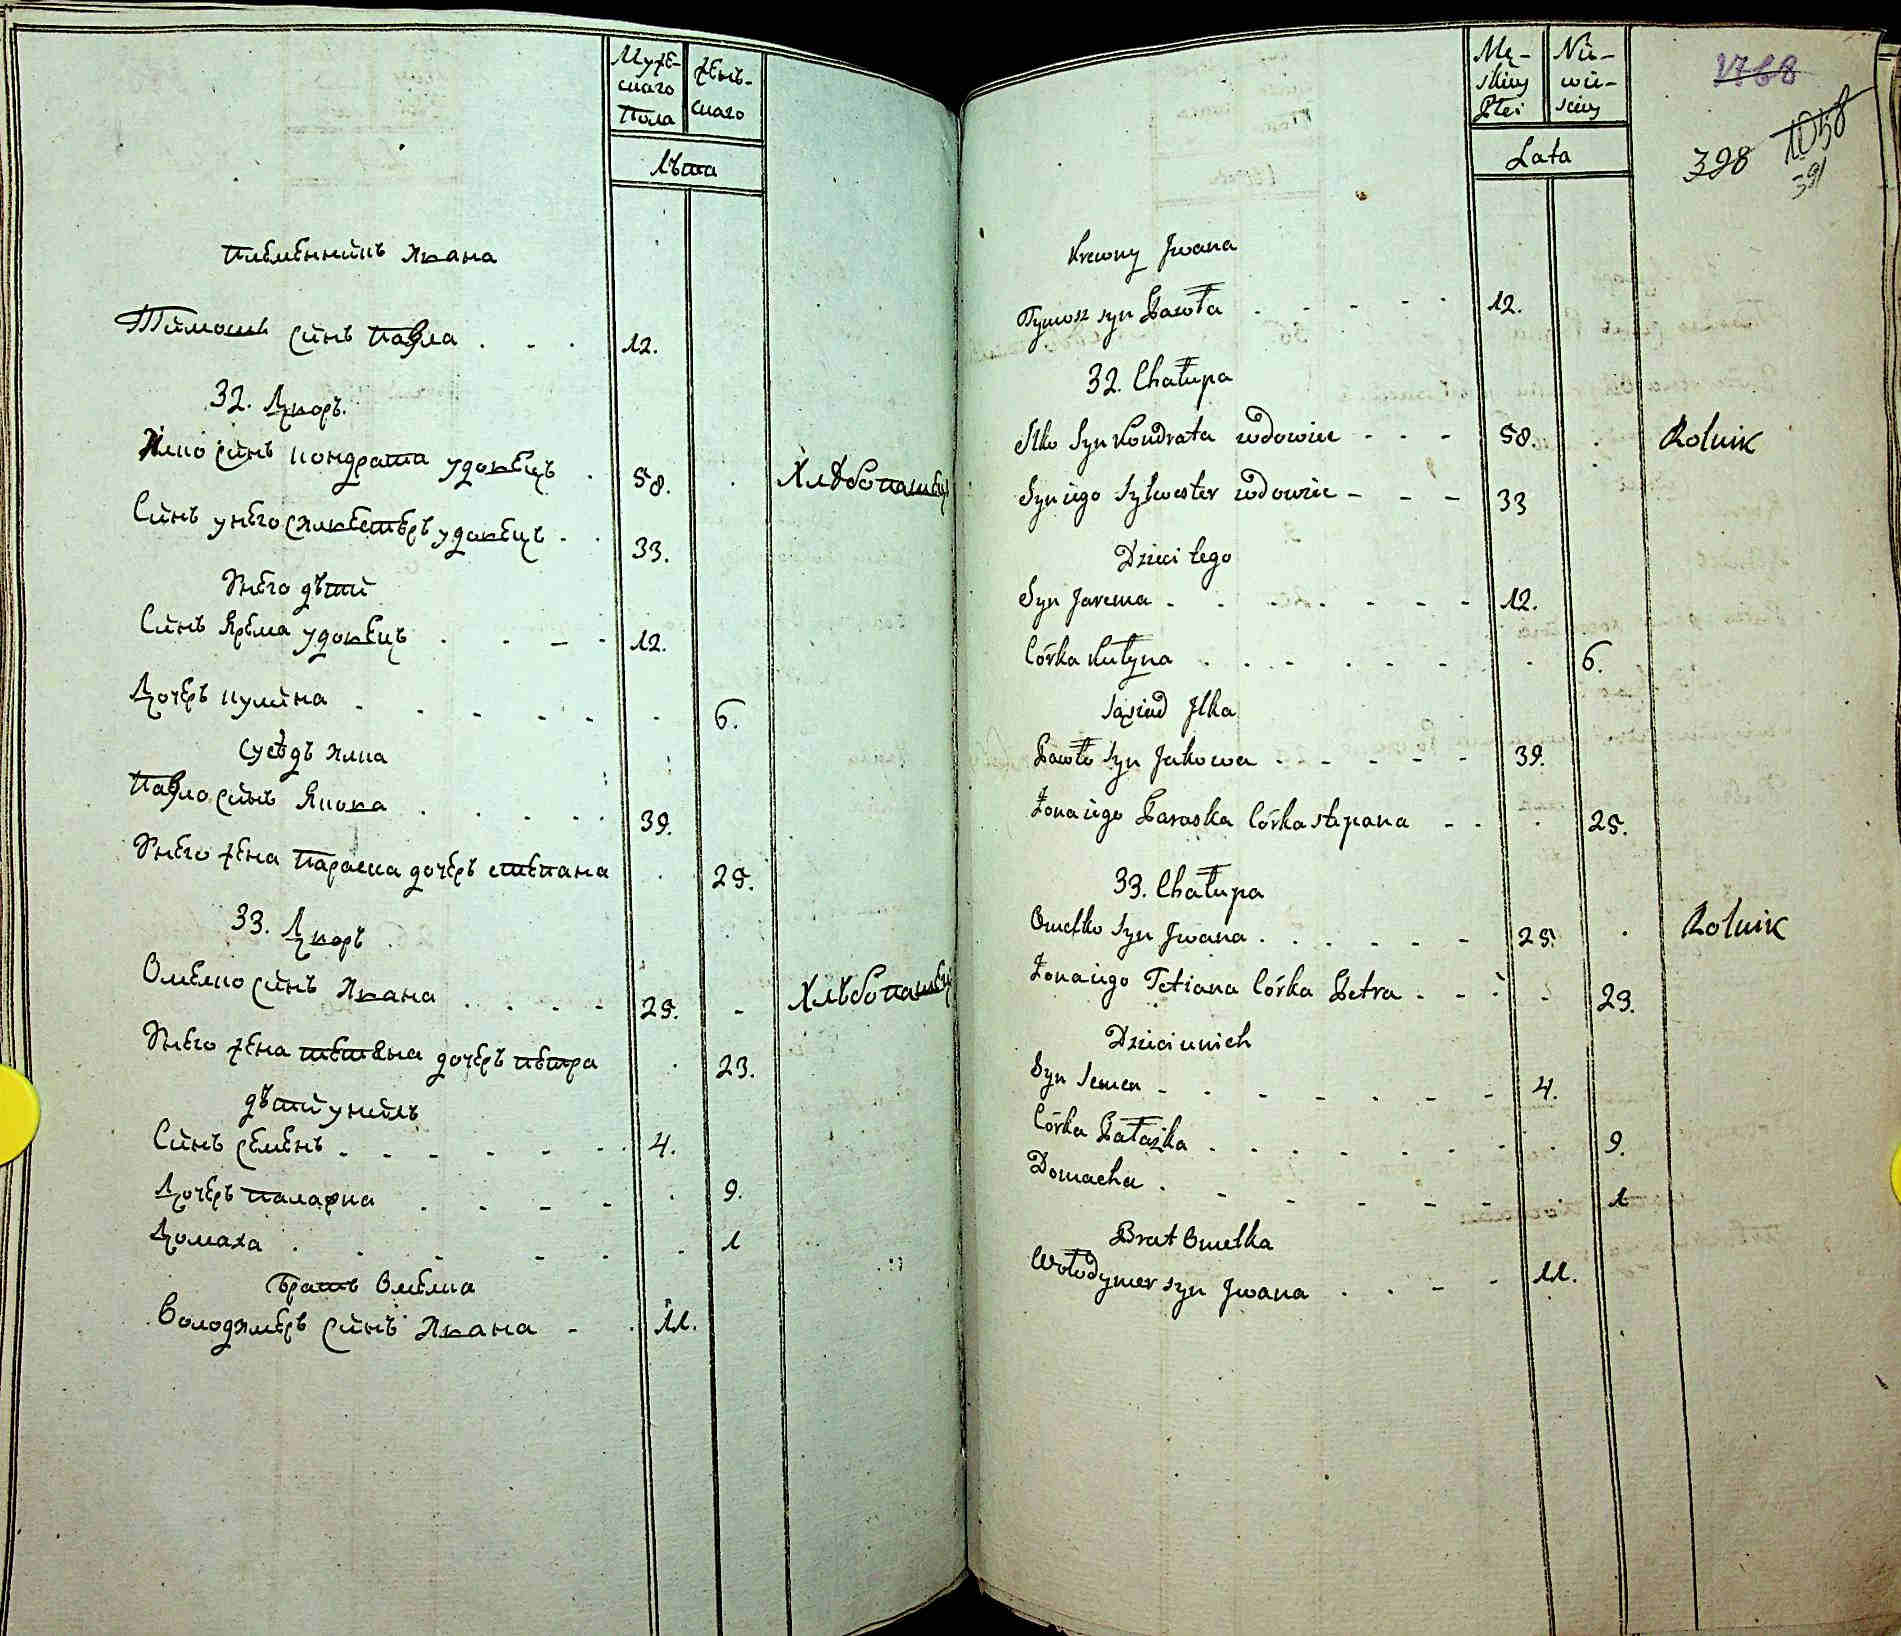 Муже-
скаго
Пола
жень-
скаго
Лѣта
племенникъ Ивана
Тимошъ синъ Павла 12.
32. Дворъ.
Илко синъ кондрата удовецъ 58. Хлѣбопашецъ
Синъ унего силвестеръ удовецъ 33.
Унего дѣти
Синъ Ярема удовецъ 12.
Дочерь кулина 6.
Сусѣдъ илка
Павло синъ Якова 39.
Унего жена Параска дочерь степана 25.
33. Дворъ
Омелко синъ Ивана 25. Хлѣбопашец
Унего жена тетяна дочерь петра 23.
дѣти унихъ
Синъ семенъ 4.
Дочерь палажка 9.
Домаха 1
братъ Омелка
володимеръ синъ Ивана 11.
Mę-
skiey
Płci
Nie-
wie-
sciey
Lata
1768
398
1058
391
Krewny Jwana
Tymosz syn Pawła 12.
32. Chałupa
Jlko Syn Kondrata wdowiec 58. Rolnik
Syn iego Sylwester wdowiec 33
Dzieci tego
Syn Jarema 12.
Córka Kulyna 6.
Sąsiad Jlka
Pawło Syn Jakowa 39.
Żona iego Paraska Córka stepana 25.
33. Chałupa
Omelko Syn Jwana 25. Rolnik
Żona iego Tetiana Córka Petra 23.
Dzieci u nich
Syn Semen 4.
Córka Pałażka 9.
Domacha 1
Brat Omelka
Wołodymer syn Jwana 11.